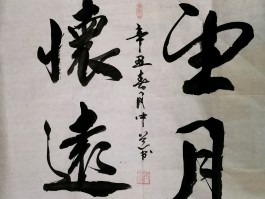 望月
懷遠
辛丑春月中益书